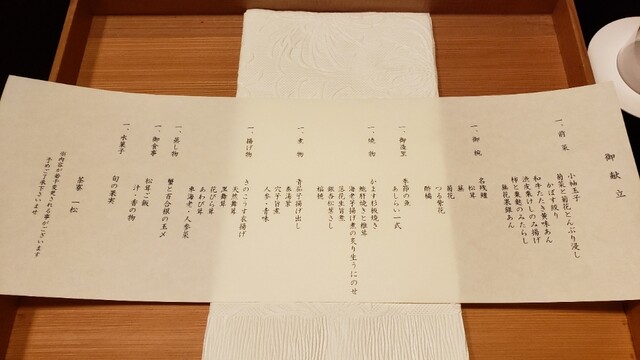 御献立
一、前菜
小袖玉子
菊菜と菊花とんぶり浸し
かます絞り
和牛たたき黄味あん
渋皮栗けしのみ揚げ
柿と東麩のみたらし
無花果銀あん
一、御椀
名残鱧
松茸
蕪
菊花
つる紫花
酢橘
一、御造里
季節の魚
あしらい一式
一、焼物
かます杉板焼き
鮑肝焼きと椎茸
海老芋揚げ煮の炙り生うにのせ
落花生旨煮
銀杏松葉さし
稲穂
一、煮物
青茄子揚げ出し
東湯葉
穴子旨煮
人参・青味
一、揚げ物
きのこうす衣揚げ
天然舞茸
黒舞茸
花びら茸
あわび茸
車海老・人参菜
一、蒸し物
蟹と百合根の玉〆
一、御食事
松茸ご飯
汁・香の物
一、水菓子
旬の果実
茶寮 一松
※内容が若干変更される事がございます
予めご了承下さいませ